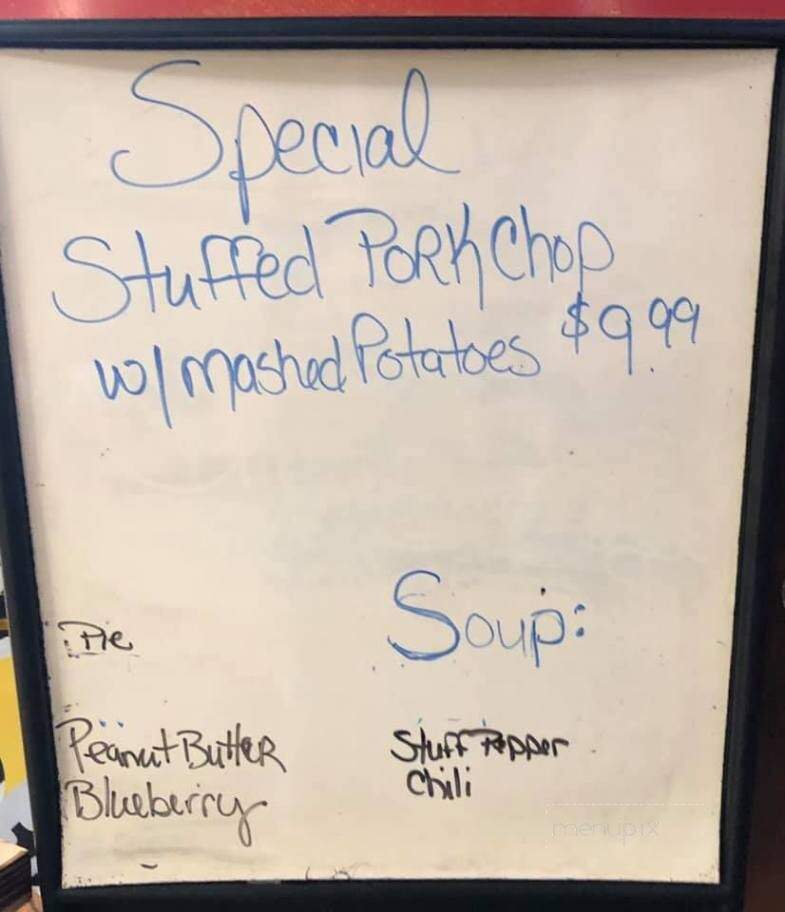 Special
Stuffed Pork Chop
w/ mashed Potatoes $9.99
Pie
Peanut Butter
Blueberry
Soup:
Stuff Pepper
Chili
menupix